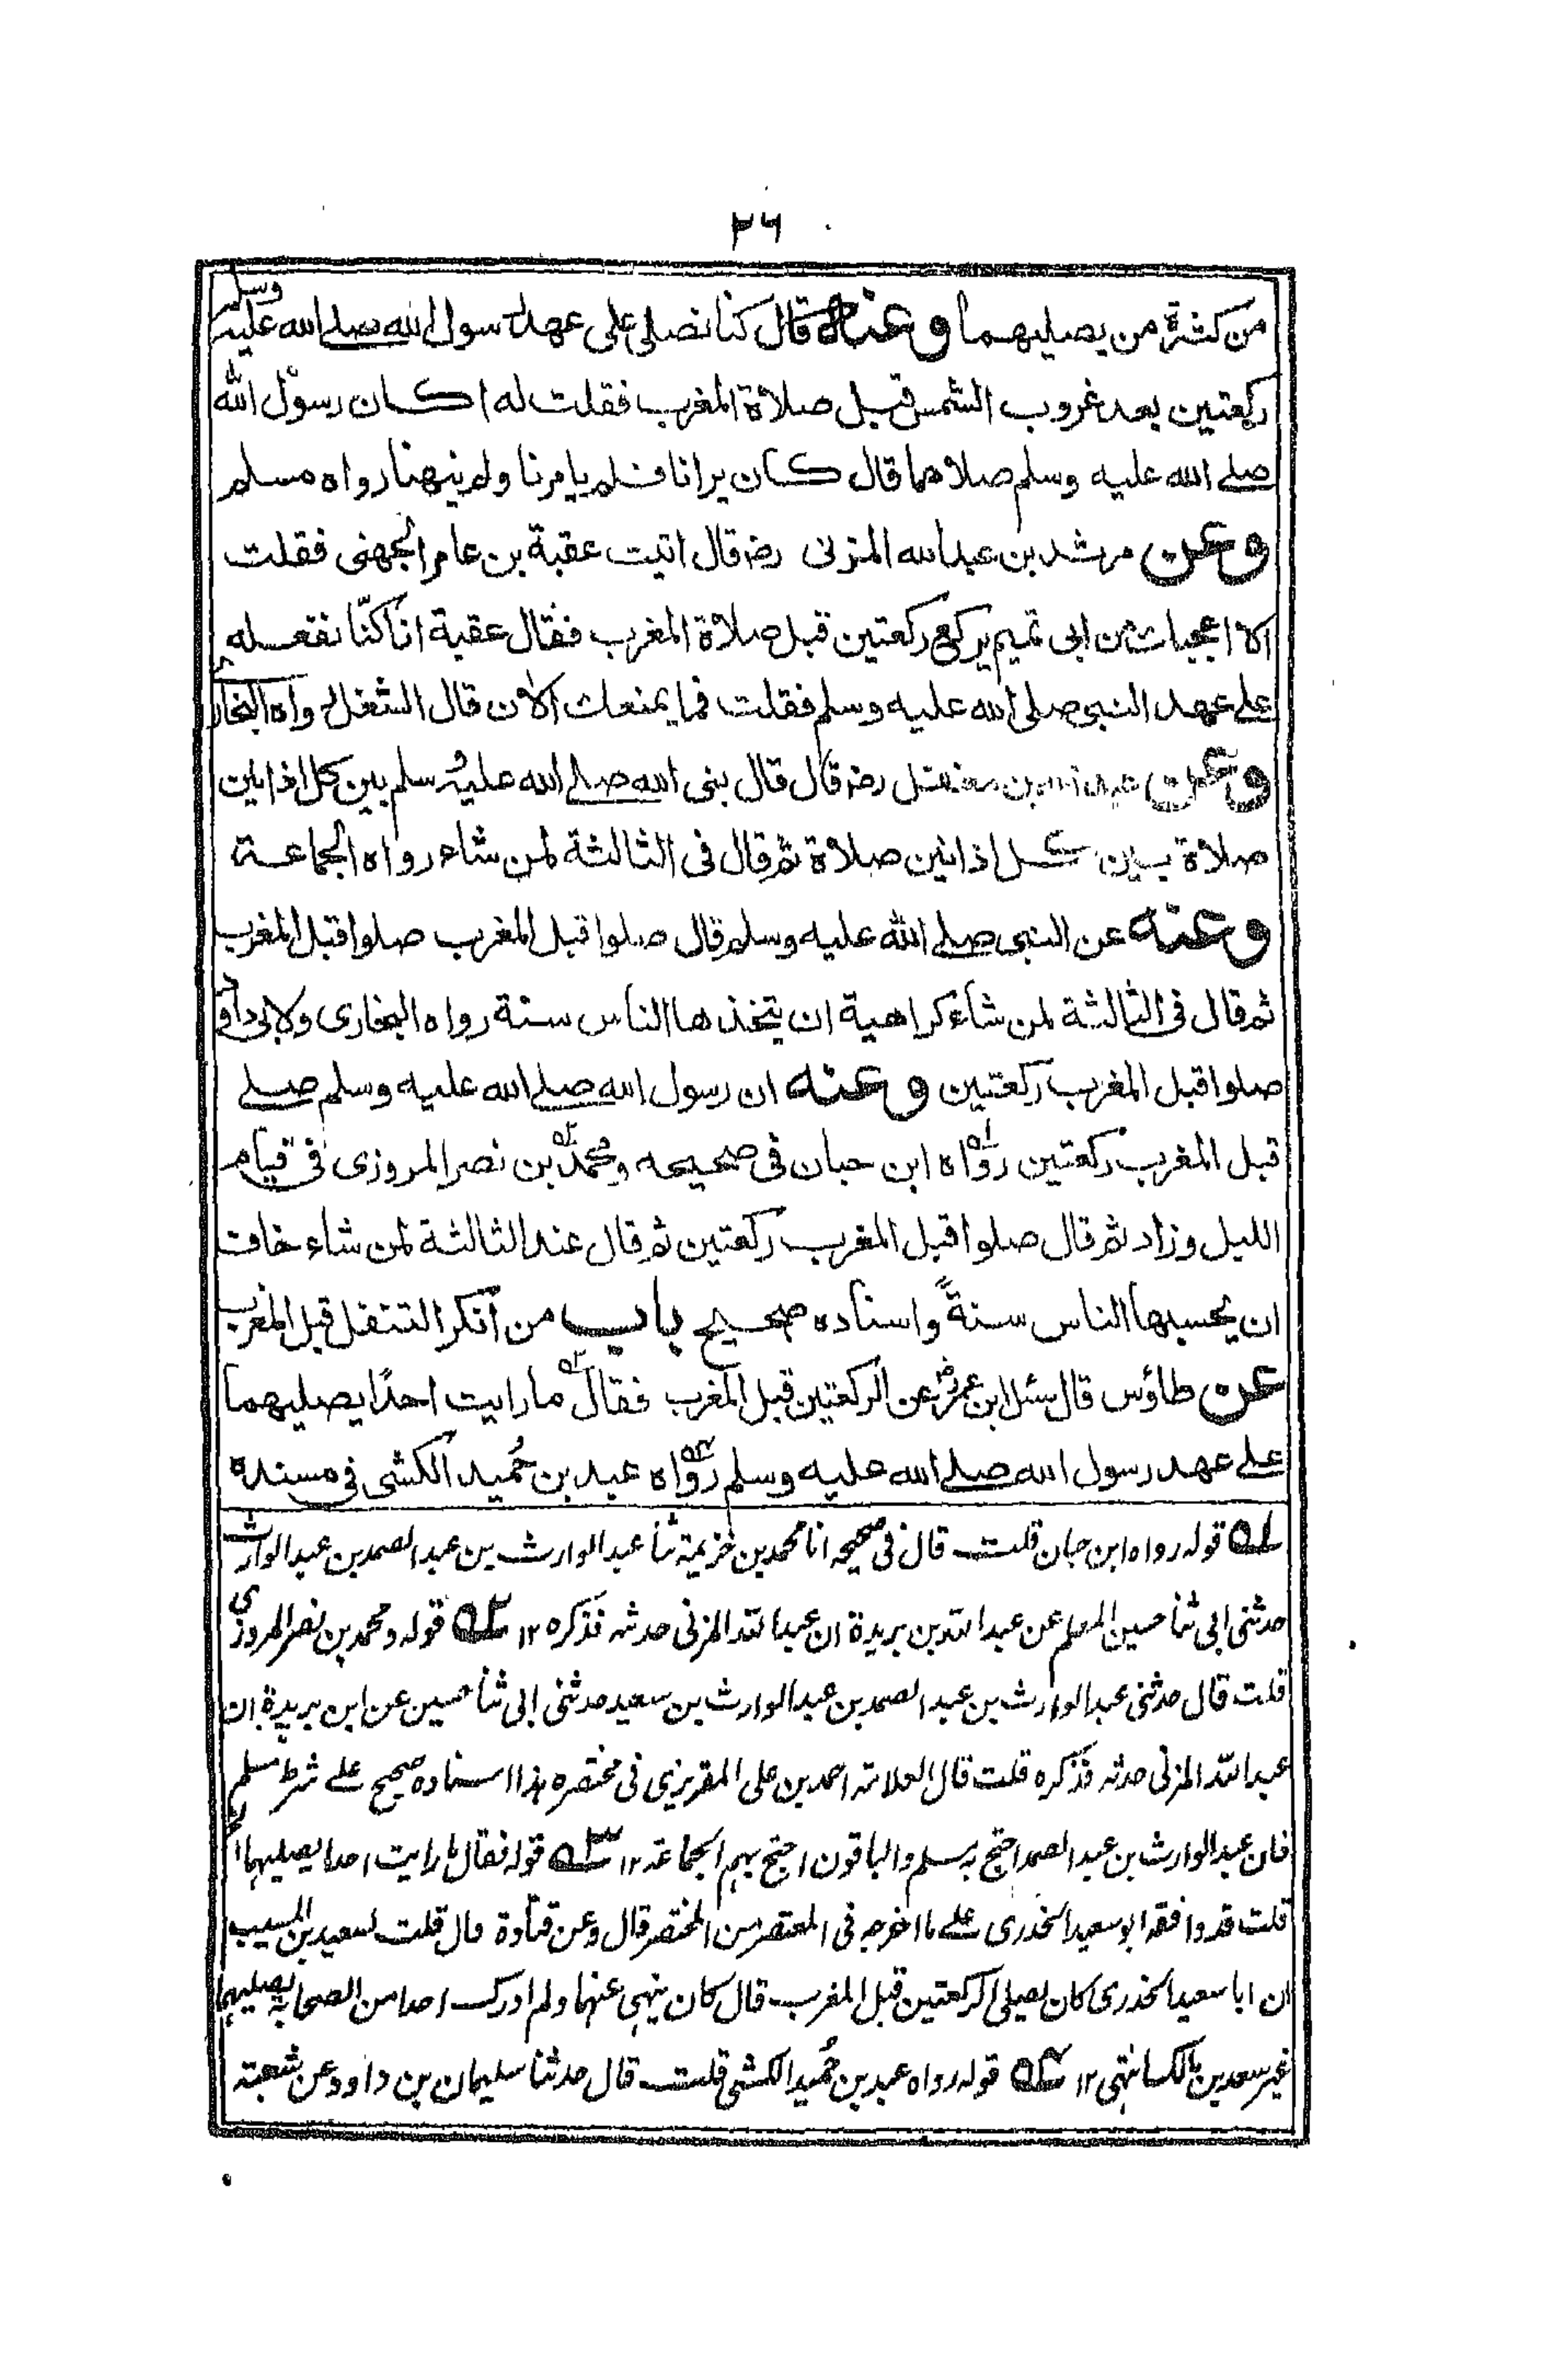 ۲۶
من كثرة من يصليهما وعنه قال كنا نصلى على عهد رسول الله صلے الله عليه وسلم
ركعتين بعد غروب الشمس قبل صلاة المغرب فقلت له اكان رسول الله
صلے الله عليه وسلم صلاهما قال كان يرانا فلم يامرنا ولم ينهنا رواه مسلم
وعن مرثد بن عبد الله المزنى رضہ قال اتيت عقبة بن عامر الجهنى فقلت
الا اعجبك من ابى تميم يركع ركعتين قبل صلاة المغرب فقال عقبة انا كنّا نفعله
علے عهد النبى صلى الله عليه وسلم فقلت فما يمنعك الآن قال الشغل رواه البخارى
وعن عبد الله بن مغفل رضہ قال قال نبى الله صلے الله عليه وسلم بين كل اذانين
صلاة بين كل اذانين صلاة ثم قال فى الثالثة لمن شاء رواه الجماعة
وعنه عن النبى صلے الله عليه وسلم قال صلوا قبل المغرب صلوا قبل المغرب
ثم قال فى الثالثة لمن شاء كراهية ان يتخذها الناس سنة رواه البخارى ولابى داؤد
صلوا قبل المغرب ركعتين وعنه ان رسول الله صلے الله عليه وسلم صلے
قبل المغرب ركعتين رواه ۱ه ابن حبان فى صحيحه ومحمد ۲ه بن نصر المروزى فى قيام
الليل وزاد ثم قال صلوا قبل المغرب ركعتين ثم قال عند الثالثة لمن شاء خاف
ان يحسبها الناس سنةً واسناده صحيح باب من أنكر التنفل قبل المغرب
عن طاؤس قال سئل ابن عمرؓ عن الركعتين قبل المغرب فقال ۳ه ما رايت احدًا يصليهما
علے عهد رسول الله صلے الله عليه وسلم رواه ۴ه عبد بن حُميد الكشى فى مسنده
۱ه قوله رواه ابن حبان قلت قال فى صحيحه انا محمد بن خزيمة ثنا عبد الوارث بن عبد الصمد بن عبد الوارث
حدثنى ابى ثنا حسين المعلم عن عبد الله بن بريدة ان عبد الله المزنى حدثه فذكره ۱۲ ۲ه قوله ومحمد بن نصر المروزى
قلت قال حدثنى عبد الوارث بن عبد الصمد بن عبد الوارث بن سعيد حدثنى ابى ثنا حسين عن ابن بريدة ان
عبد الله المزنى حدثه فذكره قلت قال العلامة احمد بن على المقريزى فى مختصره هذا اسناده صحيح علے شرط مسلم
فان عبد الوارث بن عبد الصمد احتج به مسلم والباقون احتج بهم الجماعة ۱۲ ۳ه قوله فقال ما رايت احدا يصليهما الخ
قلت قد وافقه ابو سعيد الخدرى علے ما اخرجه فى المعتصر من المختصر قال وعن قتادة قال قلت لسعيد بن المسيب
ان ابا سعيد الخدرى كان يصلى الركعتين قبل المغرب قال كان ينهى عنهما ولم ادرك احدا من الصحابة يصليهما
غير سعد بن مالك انتهى ۱۲ ۴ه قوله رواه عبد بن حُميد الكشى قلت قال حدثنا سليمان بن داود عن شعبة